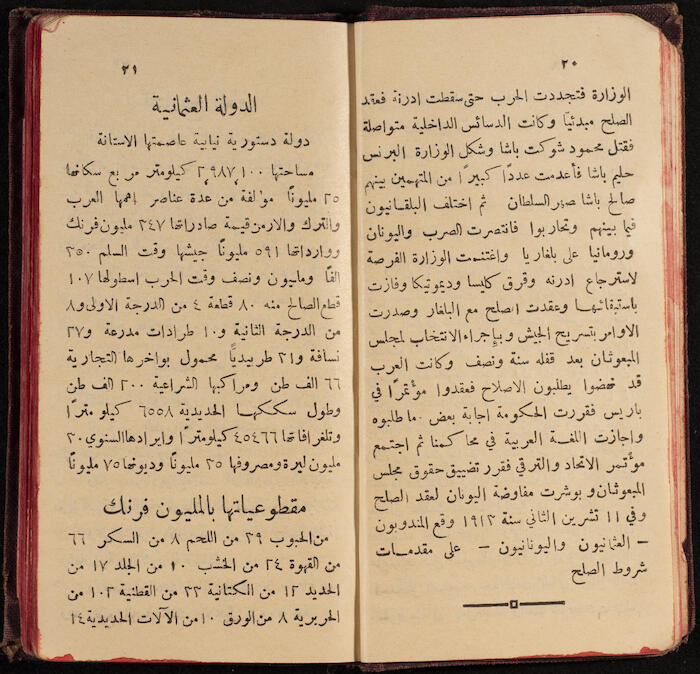 ٢٠
الوزارة فتجددت الحرب حتى سقطت ادرنة فعقد
الصلح مبدئياً وكانت الدسائس الداخلية متواصلة
فقتل محمود شوكت باشا وشكل الوزارة البرنس
حليم باشا فأعدمت عدداً كبيراً من المتهمين بينهم
صالح باشا صهر السلطان ثم اختلف البلقانيون
فيما بينهم وتحاربوا فانتصرت الصرب واليونان
ورومانيا على بلغاريا واغتنمت الوزارة الفرصة
لاسترجاع ادرنه وقرق كليسا وديموتيكا وفازت
باستيفائها وعقدت الصلح مع البلغار وصدرت
الاوامر بتسريح الجيش وبإجراء الانتخاب لمجلس
المبعوثان بعد قفله سنة ونصف وكانت العرب
قد نهضوا يطلبون الاصلاح فعقدوا مؤتمراً في
باريس فقررت الحكومة اجابة بعض ما طلبوه
واجازت اللغة العربية في محاكمنا ثم اجتمع
مؤتمر الاتحاد والترقي فقرر تضييق حقوق مجلس
المبعوثان وبوشرت مفاوضة اليونان لعقد الصلح
وفي ١١ تشرين الثاني سنة ١٩١٣ وقع المندوبون
– العثمانيون واليونانيون – على مقدمات
شروط الصلح
٢١
الدولة العثمانية
دولة دستورية نيابية عاصمتها الاستانة
مساحتها ٢,٩٨٧,١٠٠ كيلومتر مربع سكانها
٢٥ مليوناً مؤلفة من عدة عناصر اهمها العرب
والترك والارمن قيمة صادراتها ٢٤٧ مليون فرنك
ووارداتها ٥٩١ مليوناً جيشها وقت السلم ٢٥٠
الفاً ومليون ونصف وقت الحرب اسطولها ١٠٧
قطع الصالح منه ٨٠ قطعة ٤ من الدرجة الاولى و٨
من الدرجة الثانية و١٠ طرادات مدرعة و٢٧
نسافة و٢١ طربيدياً محمول بواخرها التجارية
٦٦ الف طن ومراكبها الشراعية ٢٠٠ الف طن
وطول سككها الحديدية ٦٥٥٨ كيلو متراً
وتلغرافاتها ٤٥٤٦٦ كيلومتراً وايرادها السنوي ٢٠
مليون ليرة ومصروفها ٢٥ مليوناً وديونها ٧٥ مليوناً
مقطوعياتها بالمليون فرنك
من الحبوب ٢٩ من اللحم ٨ من السكر ٦٦
من القهوة ٢٤ من الخشب ١٠ من الجلد ١٧ من
الحديد ١٢ من الكتانية ٢٣ من القطنية ١٠٢ من
الحريرية ٨ من الورق ١٠ من الآلات الحديدية ١٤